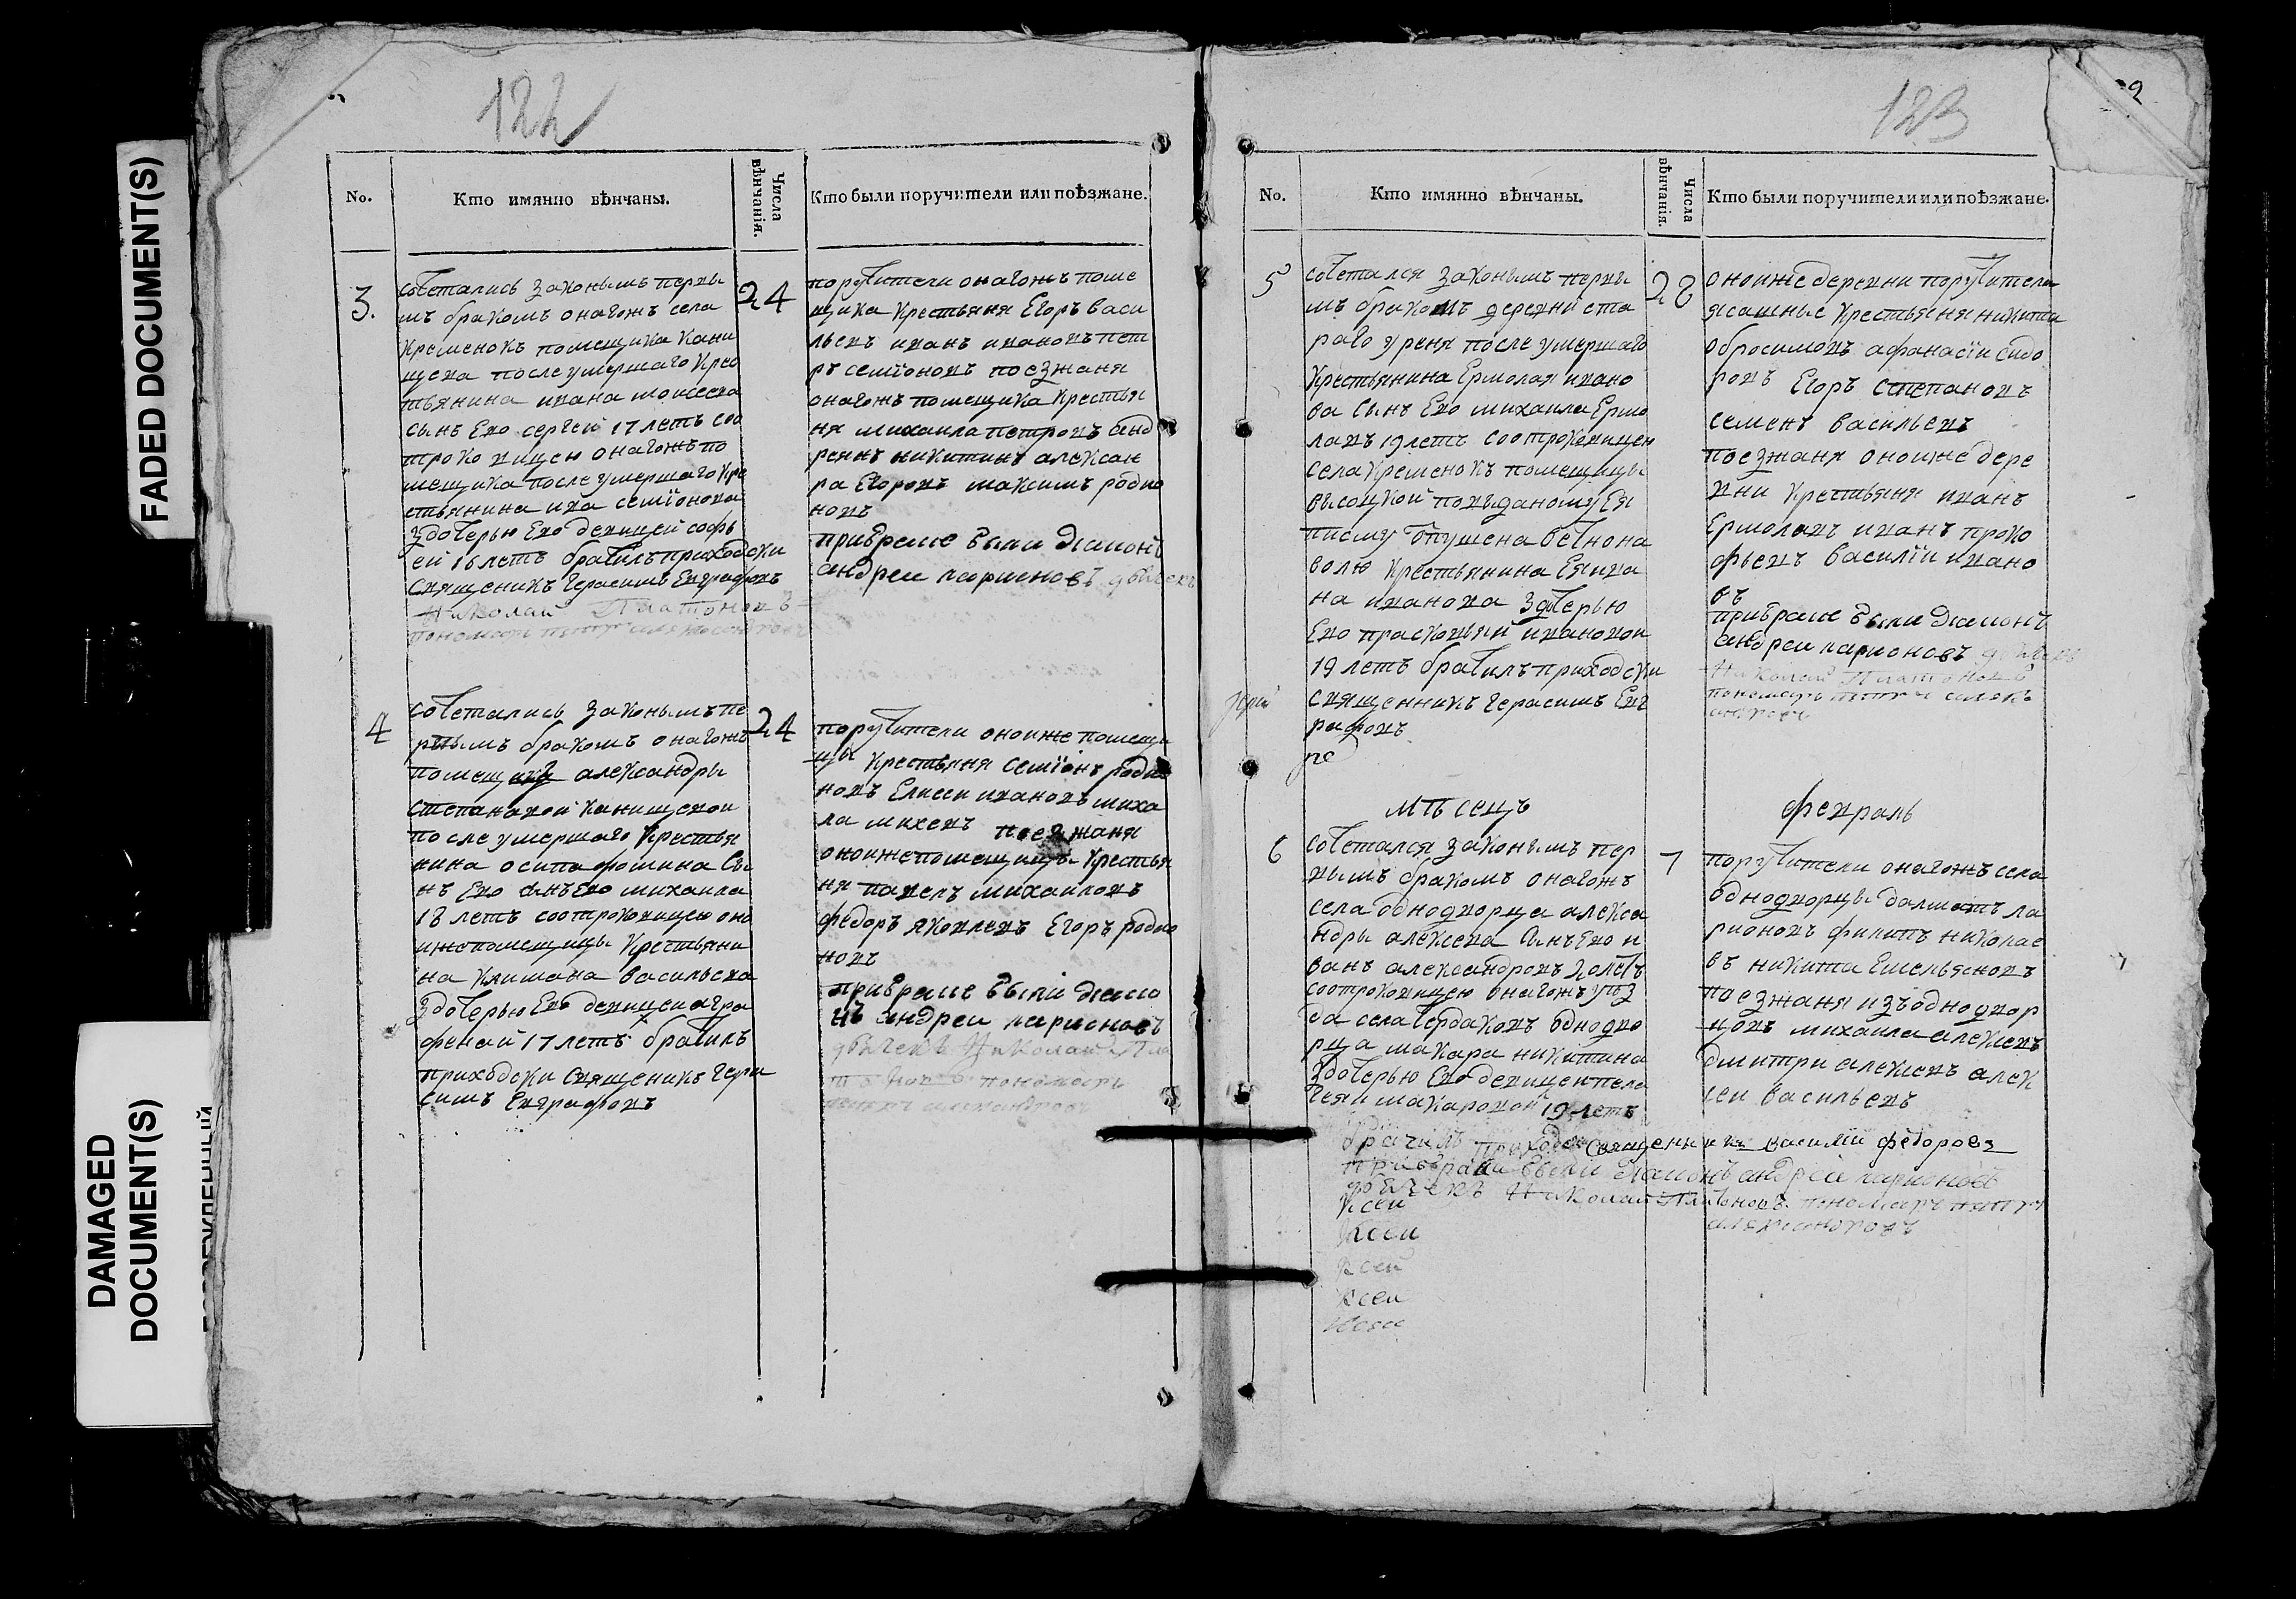 FADED DOCUMENT(S)
DAMAGED
DOCUMENT(S)
122
No.
Кто имянно вѣнчаны.
Числа
вѣнчанія.
Кто были поручители или поѣзжане.
3.
сочетались законымъ первы
мъ бракомъ онагожъ села
кременокъ помещика Кани
щева после умершаго крес
тьянина ивана моисеева
сынъ Ево сергей 17 летъ соо
троковицею онагожъ по
мещика после умершаго кре
стьянина ива семіонова
здочерью Ево девицей софь
ей 16 летъ брачилъ приходски
священикъ Герасимъ Евграфовъ
Николай Платоновъ
24
поручители онагожъ поме
щика крестьяня Егоръ васи
льевъ иванъ ивановъ пет
ръ семіоновъ поезжаня
онагожъ помещика крестья
ня михаила петровъ анд
реянъ никитинъ алексан
ра Егоровъ максимъ родио
новъ
прибраке были диаконъ
андреи ларионовъ дьячекъ
4
сочетались законымъ пе
рвымъ бракомъ онагожъ
помещицы александры
степанавои канищевои
после умершаго крестья
нина осипа фомина сы
нъ Ево михаила
18 летъ соотроковицею оно
ижепомещицы крестьяни
на климана васильева
здочерью Ево девицеи агра
феной 17 летъ брачилъ
приходски священикъ Гера
симъ Евграфовъ
24
поручители ононже помещи
цы крестьяня семіонъ родио
новъ Елисеи ивановъ миха
ла михеевъ поезжаня
ононжепомещицы крестья
ня павелъ михаиловъ
федоръ яковлевъ Егоръ родио
новъ
прибраке были диако
нъ андреи ларионовъ
дьячекъ Николай Пла
тоновъ пономарь
123
No.
Кто имянно вѣнчаны.
Числа
вѣнчанія.
Кто были поручители или поѣзжане.
5
сочетался законымъ первы
мъ бракомъ деревни ста
раго уреня после умершаго
крестьянина Ермолая ивано
ва сынъ Ево михаила Ермо
лаевъ 19 летъ соотроковицею
села кременокъ помещицы
высоцкой повыданому Ея
писму отпущена вечнона
волю крестьянина Ея ива
на иванова здочерью
Ево прасковьяй ивановои
19 летъ брачилъ приходски
священникъ Герасимъ Евг
рафовъ
28
ононже деревни поручители
ясашные крестьяня никита
обросимовъ афанасіи сидо
ровъ Егоръ степановъ
семенъ васильевъ
поезжаня ононже дере
вни крестьяня иванъ
Ермолаевъ иванъ проко
фьевъ василіи ивано
въ
прибраке были диаконъ
андреи ларионовъ дьячекъ
Николай Платоновъ
мѣсецъ
февраль
6
сочетался законымъ пер
вымъ бракомъ онагожъ
села однодворца алекса
ндры алексеева сынъ Ево и
ванъ александровъ 20 летъ
соотроковицею онагожъ уез
да села чердаковъ однодво
рца макара никитина
здочерью Ево девицеи пела
геяи макаровои 19 летъ
7
поручители онагожъ села
однодворцы далматъ ла
рионовъ филипъ николае
въ никита Емельяновъ
поезжаня изъ однодвор
цовъ михаила алексеевъ
дмитри алексеевъ алек
сеи васильевъ
брачилъ приходски священникъ василіи федоровъ
прибраке были диаконъ андреи ларионовъ
дьячекъ Николай Платоновъ пономарь петръ
александровъ
ксеи
ксеи
ксеи
ксеи